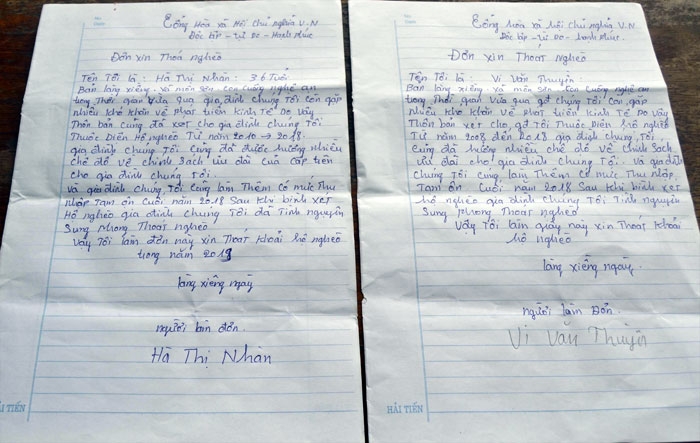 Cổng Hòa xã Hội Chủ nghĩa V.N
Độc lập - Tự Do - Hạnh Phúc
Đơn xin Thoá nghèo
Tên Tôi là: Hà Thị Nhàn: 36 Tuổi:
Bản làng xiềng. xã môn sơn con Cuông nghệ an
trong Thời gian vừa qua gia đình chúng Tôi Còn gặp
nhiều khó khăn về phát Triển Kinh Tế Do Vậy
Thôn bản Cũng đã xét Cho gia đình chúng Tôi
Thuộc Diện Hộ nghèo Từ năm 2010 → 2018.
gia đình Chúng Tôi Cũng đã được hưởng nhiều
chế độ về chính Sách ưu đãi Của Cấp trên
cho gia đình chúng Tôi.
Và gia đình Chúng Tôi Cũng làm Thêm có mức Thu
Nhập Tạm ổn Cuối năm 2018 Sau Khi bình xét
Hộ nghèo gia đình Chúng Tôi đã Tình nguyện
Sung Phong Thoát nghèo
Vậy Tôi làm đơn này xin Thoát Khoải hộ nghèo
trong năm 2019
làng xiềng ngày
người làm đơn.
Hà Thị Nhàn
HẢI TIẾN
Cổng hòa xã hội Chủ nghĩa V.N
Độc lập - Tự Do - hạnh Phúc.
Đơn xin Thoát nghèo
Tên Tôi là: Vi Văn Thuyên:
Bản làng xiềng xã môn Sơn con Cuông nghệ an
trong Thời gian vừa qua gđ chúng Tôi Còn gặp
nhiều Khó Khăn về phát Triển kinh Tế Do Vậy
Thôn bản xét cho gđ Tôi Thuộc Diện hộ nghèo
Từ năm 2008 đến 2018 gia đình chúng Tôi
Cũng đã hưởng nhiều chế độ về chính Sách
ưu đãi cho gia đình chúng Tôi. Và gia đình
Chúng Tôi cũng làm Thêm có mức Thu nhập
Tạm ổn Cuối năm 2018 Sau khi bình xét
hộ nghèo gia đình Chúng Tôi Tình nguyện
Sung Phong Thoát nghèo
Vậy Tôi làm giấy này xin Thoát Khoải
hộ nghèo
làng xiềng ngày.
người làm Đơn.
Vi Văn Thuyên
HẢI TIẾN